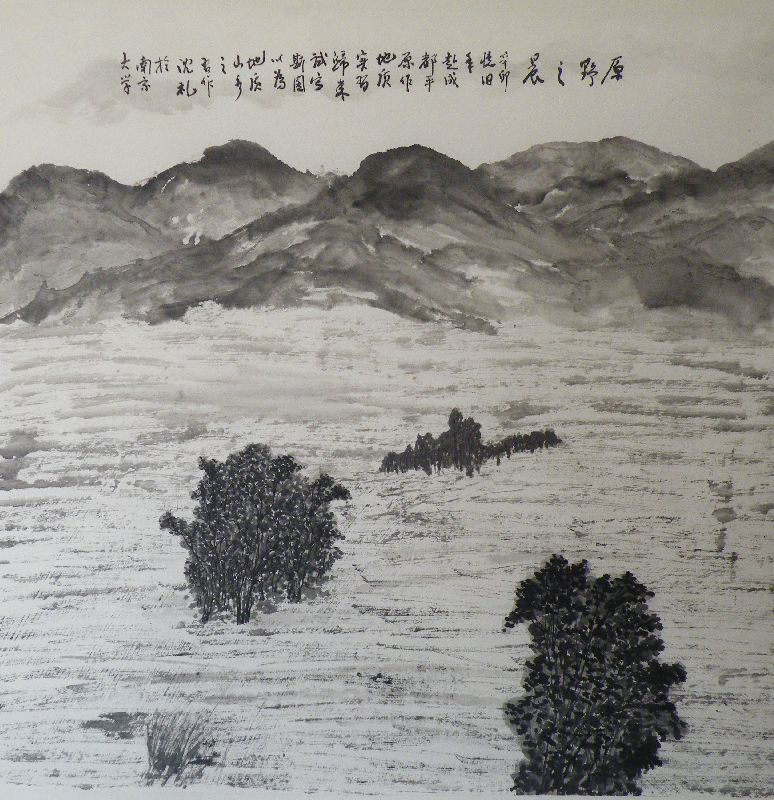 原
野
之
晨
辛卯
憶旧
年
赴成
都平
原作
地质
实習
歸来
試写
斯图
以为
地质
山水
之
吾作
沈礼
於
南京
大学